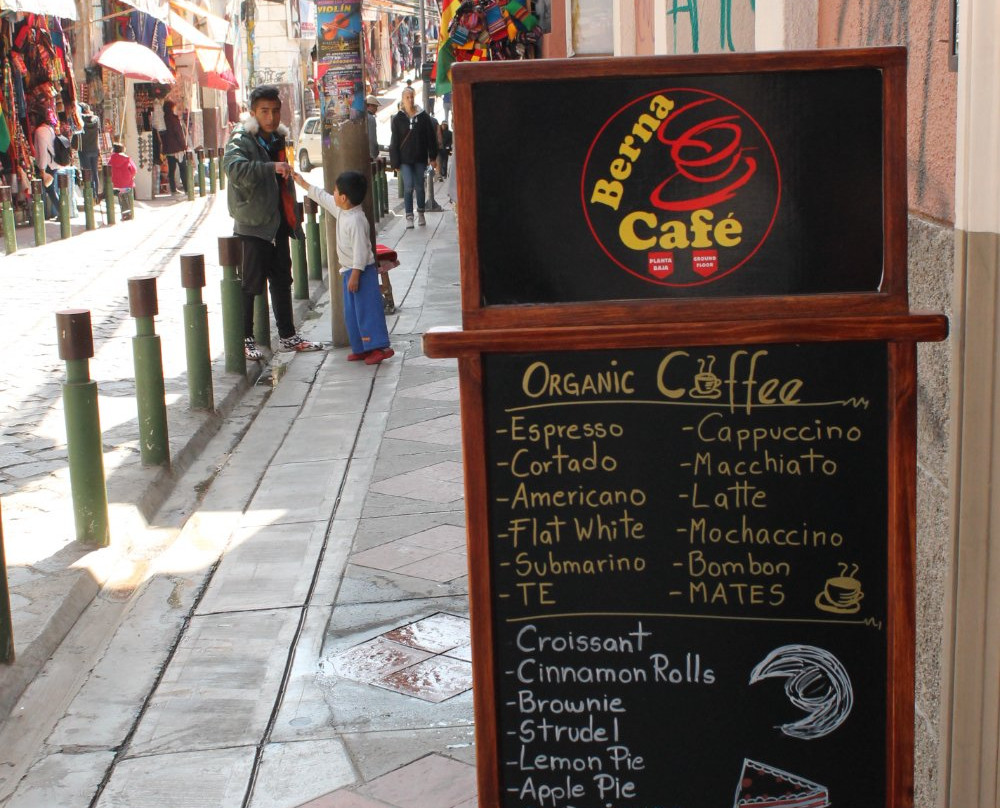 VIOLÍN
Berna
Café
PLANTA BAJA
GROUND FLOOR
ORGANIC Coffee
-Espresso
-Cortado
-Americano
-Flat White
-Submarino
-TE
-Cappuccino
-Macchiato
-Latte
-Mochaccino
-Bombon
-MATES
Croissant
-Cinnamon Rolls
-Brownie
-Strudel
-Lemon Pie
-Apple Pie